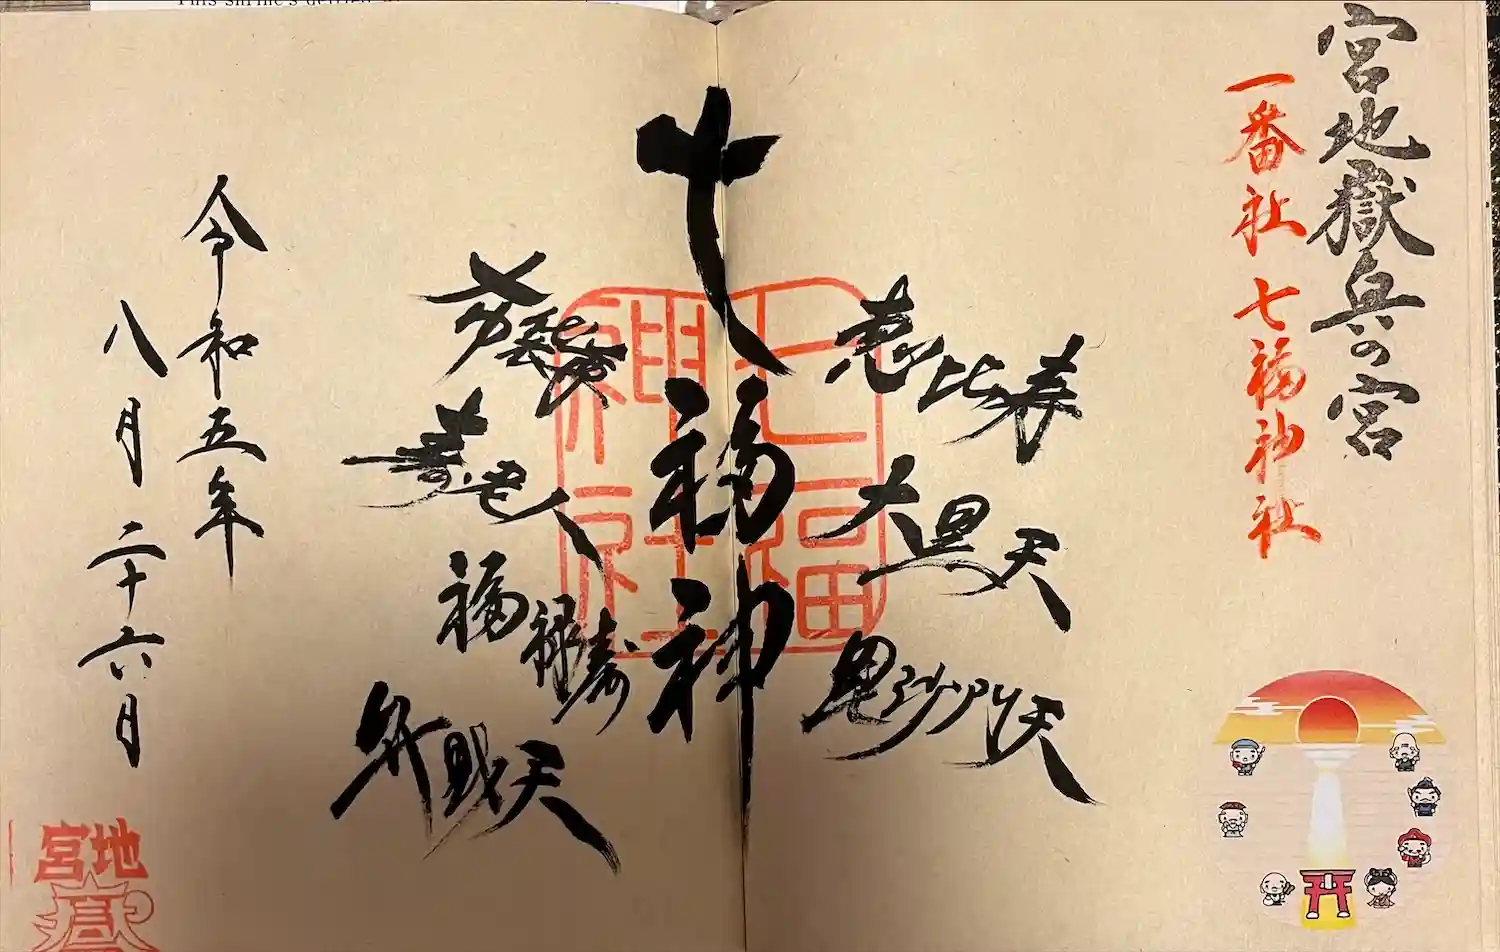 This shrine's deified
宮地嶽兵の宮
一番社 七福神社
七福神
恵比寿
大黒天
毘沙門天
寿老人
福禄寿
弁財天
七福神社
令和五年
八月二十六月
宮地